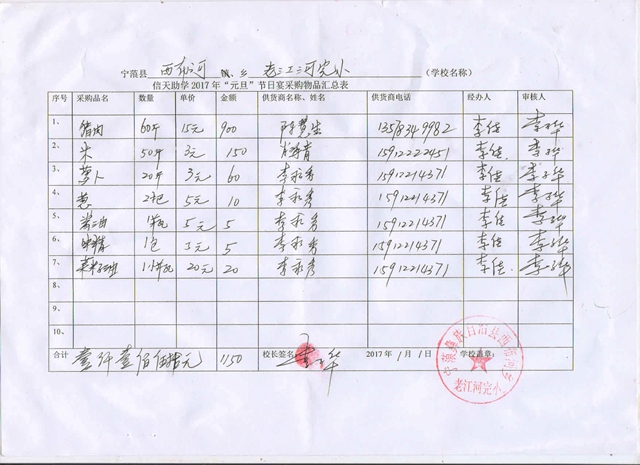 宁蒗县 西布河 镇、乡 老江河完小 (学校名称)
信天助学2017年“元旦”节日宴采购物品汇总表
序号 采购品名 数量 单价 金额 供货商名称、姓名 供货商电话 经办人 审核人
1、 猪肉 60斤 15元 900 13578349982 李佳
2、 米 50斤 3元 150 15912222451 李佳
3、 萝卜 20斤 3元 60 李永秀 15912214371 李佳
4、 葱 2把 5元 10 李永秀 15912214371 李佳
5、 酱油 1瓶 5元 5 李永秀 15912214371 李佳
6、 味精 1包 5 李永秀 15912214371 李佳
7、 菜籽油 20元 20 李永秀 15912214371 李佳
8、
9、
10、
合计 壹仟壹佰伍拾元 1150 校长签名: 2017年1月1日 学校盖章:
老江河完小